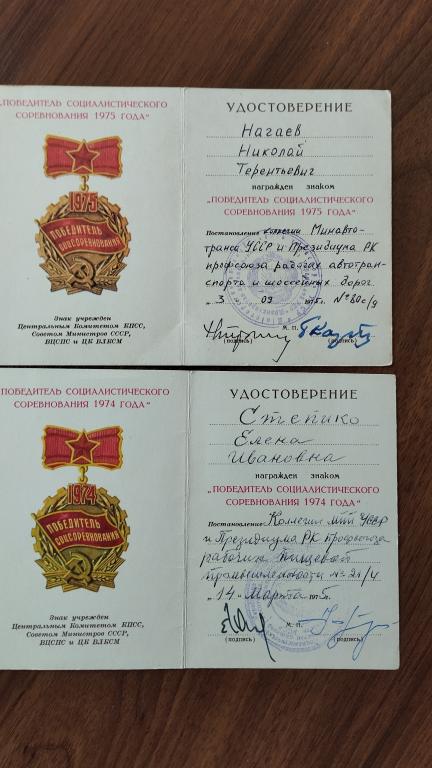 „ПОБЕДИТЕЛЬ СОЦИАЛИСТИЧЕСКОГО
СОРЕВНОВАНИЯ 1975 ГОДА"
1975
ПОБЕДИТЕЛЬ
СОЦСОРЕВНОВАНИЯ
Знак учрежден
Центральным Комитетом КПСС,
Советом Министров СССР,
ВЦСПС и ЦК ВЛКСМ
УДОСТОВЕРЕНИЕ
Нагаев
Николай
Терентьевич
награжден знаком
„ПОБЕДИТЕЛЬ СОЦИАЛИСТИЧЕСКОГО
СОРЕВНОВАНИЯ 1975 ГОДА"
Постановление коллегии Минавто-
транса УССР и Президиума РК
профсоюза рабочих автотран-
спорта и шоссейных дорог
„3 09 1975г. №80с/9
М. П.
(подпись) (подпись)
ПОБЕДИТЕЛЬ СОЦИАЛИСТИЧЕСКОГО
СОРЕВНОВАНИЯ 1974 ГОДА"
1974
ПОБЕДИТЕЛЬ
СОЦСОРЕВНОВАНИЯ
Знак учрежден
Центральным Комитетом КПСС,
Советом Министров СССР,
ВЦСПС и ЦК ВЛКСМ
УДОСТОВЕРЕНИЕ
Степико
Елена
Ивановна
награжден знаком
„ПОБЕДИТЕЛЬ СОЦИАЛИСТИЧЕСКОГО
СОРЕВНОВАНИЯ 1974 ГОДА"
Постановление Коллегии МПП УССР
и Президиума РК профсоюза
рабочих Пищевой
промышленности
„14 Марта 1975
М. П.
(подпись) (подпись)